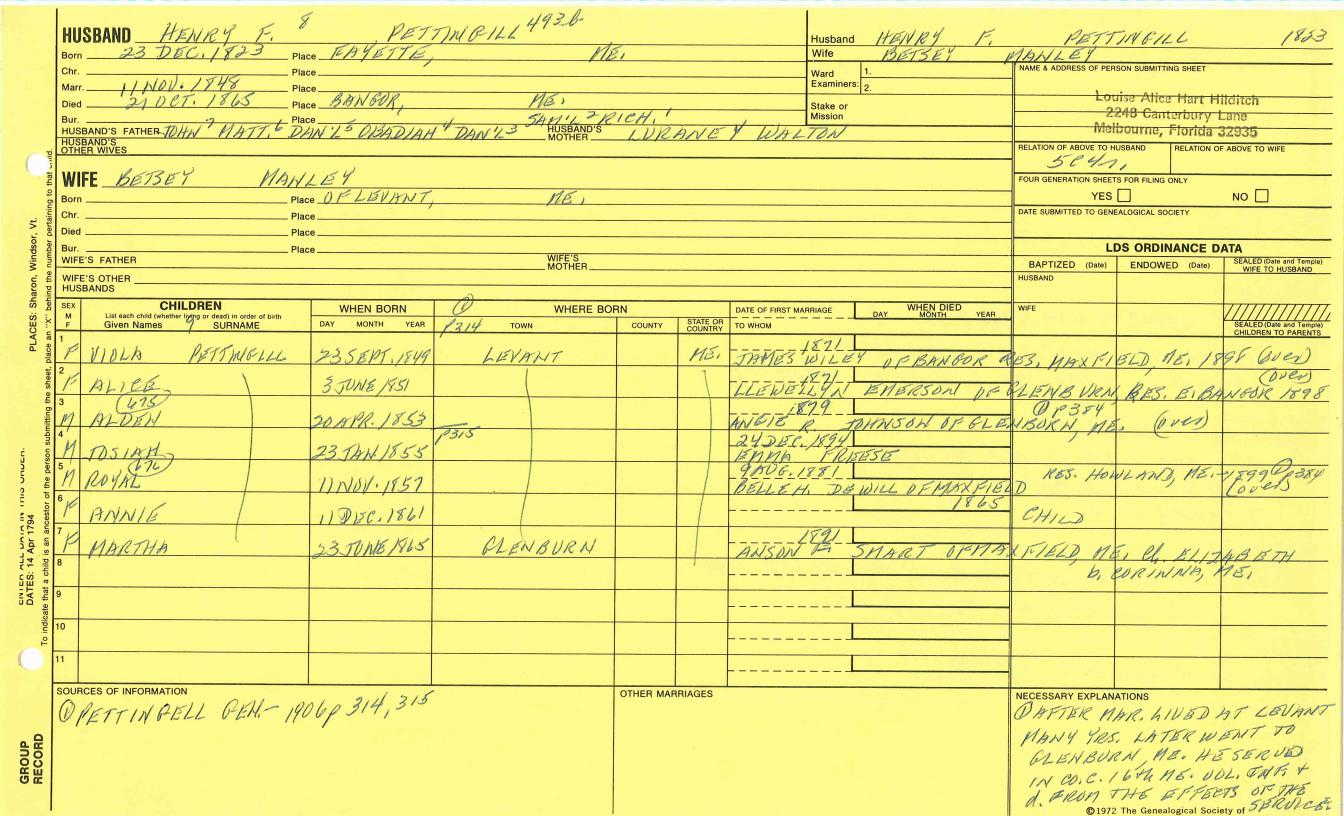 HUSBAND HENRY F. 8 PETTINGILL 493b
Born 23 DEC. 1823 Place FAYETTE, ME.
Chr. Place
Marr. 11 NOV. 1848 Place
Died 21 OCT. 1865 Place BANGOR, ME.
Bur. Place SAM'L 2 RICH. 1
HUSBAND'S FATHER JOHN 7 MATT. 6 DAN'L 5 OBADIAH 4 DAN'L 3 HUSBAND'S MOTHER LURANEY WALTON
HUSBAND'S OTHER WIVES
Husband HENRY F. PETTINGILL 1823
Wife BETSEY MANLEY
Ward Examiners: 1.
2.
Stake or Mission
NAME & ADDRESS OF PERSON SUBMITTING SHEET
Louise Alice Hart Hilditch
2248 Canterbury Lane
Melbourne, Florida 32935
RELATION OF ABOVE TO HUSBAND RELATION OF ABOVE TO WIFE
5C4r,
FOUR GENERATION SHEETS FOR FILING ONLY
YES NO
DATE SUBMITTED TO GENEALOGICAL SOCIETY
WIFE BETSEY MANLEY
Born Place OF LEVANT, ME.
Chr. Place
Died Place
Bur. Place
WIFE'S FATHER WIFE'S MOTHER
WIFE'S OTHER HUSBANDS
LDS ORDINANCE DATA
BAPTIZED (Date) ENDOWED (Date) SEALED (Date and Temple) WIFE TO HUSBAND
HUSBAND
WIFE
SEALED (Date and Temple) CHILDREN TO PARENTS
SEX M F
CHILDREN
List each child (whether living or dead) in order of birth
Given Names 9 SURNAME
WHEN BORN
DAY MONTH YEAR
① P314
WHERE BORN
TOWN COUNTY STATE OR COUNTRY
DATE OF FIRST MARRIAGE
TO WHOM
WHEN DIED
DAY MONTH YEAR
1 F VIOLA PETTINGILL 23 SEPT. 1849 LEVANT ME. 1871
JAMES WILEY OF BANGOR RES. MAXFIELD, ME. 1898 (over)
2 F ALICE 3 JUNE 1851 1871 (over)
LLEWELLYN EMERSON OF GLENBURN, RES. E. BANGOR 1898
3 M ALDEN (675) 20 APR. 1853 1879 ① P384
ANGIE R. JOHNSON OF GLENBURN, ME. (over)
4 M JOSIAH 23 JAN 1855 P315 24 DEC. 1894
EMMA FREESE
5 M ROYAL (676) 11 NOV. 1857 9 AUG. 1881 RES. HOWLAND, ME. - 1899 ① P384
BELLE H. DEWILL OF MAXFIELD (over)
6 F ANNIE 11 DEC. 1861 1865 CHILD
7 F MARTHA 23 JUNE 1865 GLENBURN 1891
ANSON F. SMART OF MAXFIELD, ME. Ch. ELIZABETH
b. CORINNA, ME.
8
9
10
11
SOURCES OF INFORMATION
① PETTINGELL GEN. - 1906 p 314, 315
OTHER MARRIAGES
NECESSARY EXPLANATIONS
① AFTER MAR. LIVED AT LEVANT
MANY YRS. LATER WENT TO
GLENBURN, ME. HE SERVED
IN CO. C. 16th ME. VOL. INF. +
d. FROM THE EFFECTS OF THE
SERVICE.
©1972 The Genealogical Society of
PLACES: Sharon, Windsor, Vt.
ENTER ALL DATA IN THIS ORDER:
DATES: 14 Apr 1794
To indicate that a child is an ancestor of the person submitting the sheet, place an "X" behind the number pertaining to that child.
GROUP RECORD